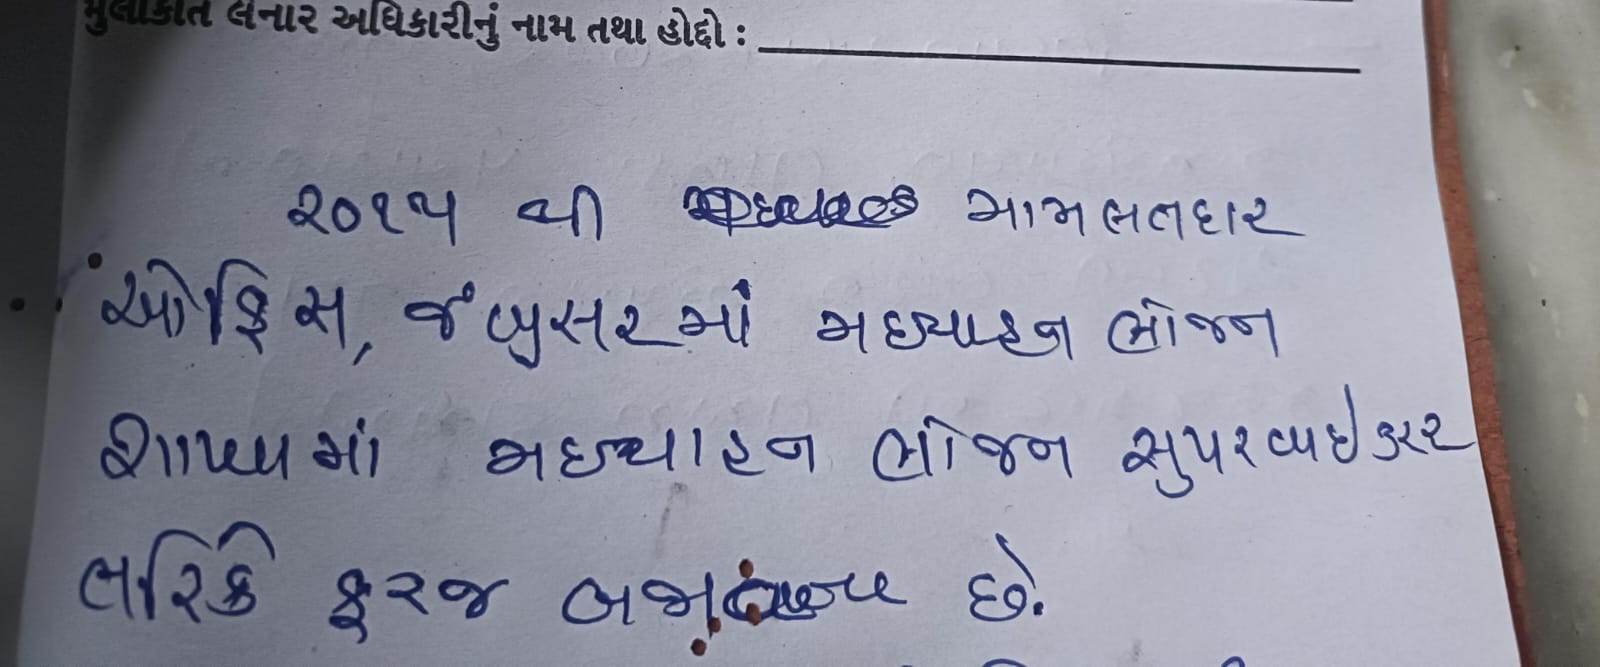 મુલાકાત લેનાર અધિકારીનું નામ તથા હોદ્દો :
૨૦૧૫ થી મામલતદાર
ઓફિસ, જંબુસરમાં મધ્યાહન ભોજન
શાખામાં મધ્યાહન ભોજન સુપરવાઇઝર
તરિકે ફરજ છે.